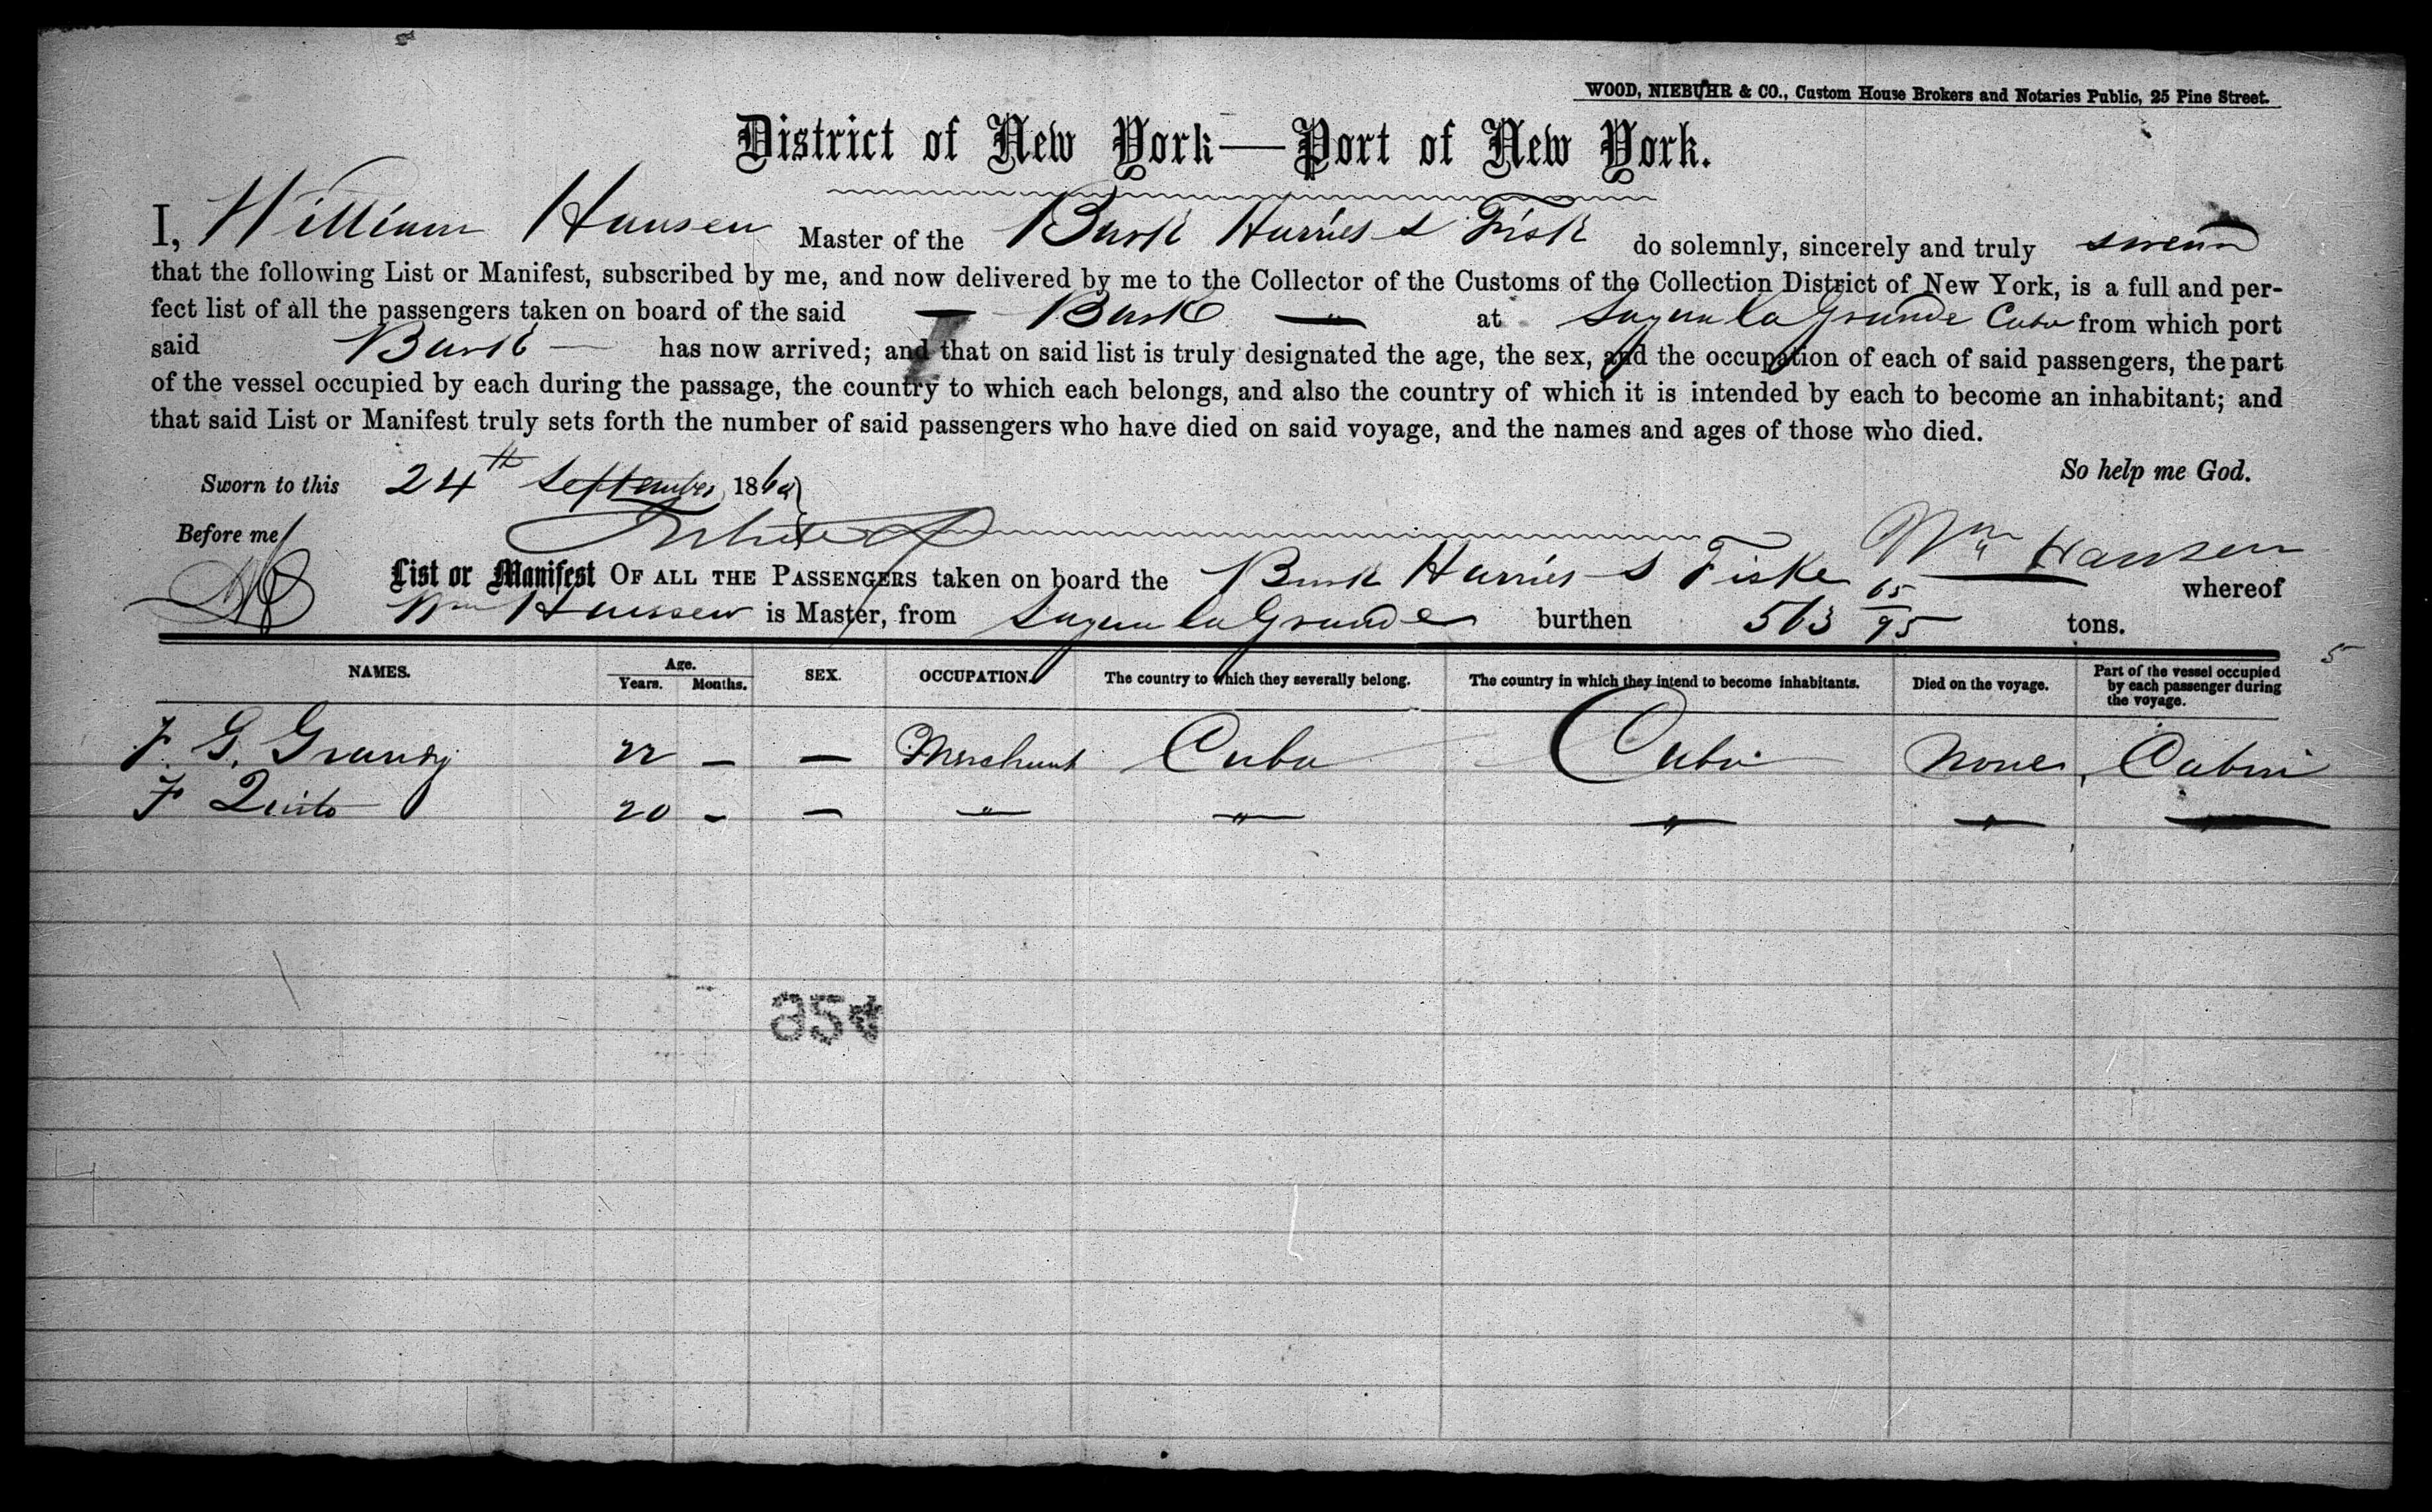 WOOD, NIEBUHR & CO., Custom House Brokers and Notaries Public, 25 Pine Street.
District of New York—Port of New York.
I, William Hansen Master of the Bark Harriet S Fisk do solemnly, sincerely and truly swear
that the following List or Manifest, subscribed by me, and now delivered by me to the Collector of the Customs of the Collection District of New York, is a full and per-
fect list of all the passengers taken on board of the said — Bark — " — at Sagua la Grande Cuba from which port
said Bark — has now arrived; and that on said list is truly designated the age, the sex, and the occupation of each of said passengers, the part
of the vessel occupied by each during the passage, the country to which each belongs, and also the country of which it is intended by each to become an inhabitant; and
that said List or Manifest truly sets forth the number of said passengers who have died on said voyage, and the names and ages of those who died.
So help me God.
Sworn to this 24th September 186
Before me
Wm Hansen
List or Manifest OF ALL THE PASSENGERS taken on board the Bark Harriet S Fiske whereof
Wm Hanssen is Master, from Sagua la Grande burthen 563 65/95 tons.
5
NAMES. Age. Years. Months. SEX. OCCUPATION. The country to which they severally belong. The country in which they intend to become inhabitants. Died on the voyage. Part of the vessel occupied by each passenger during the voyage.
F. G. 22 – — Merchant Cuba Cuba None Cabin
F 20 – — " " " " "
254